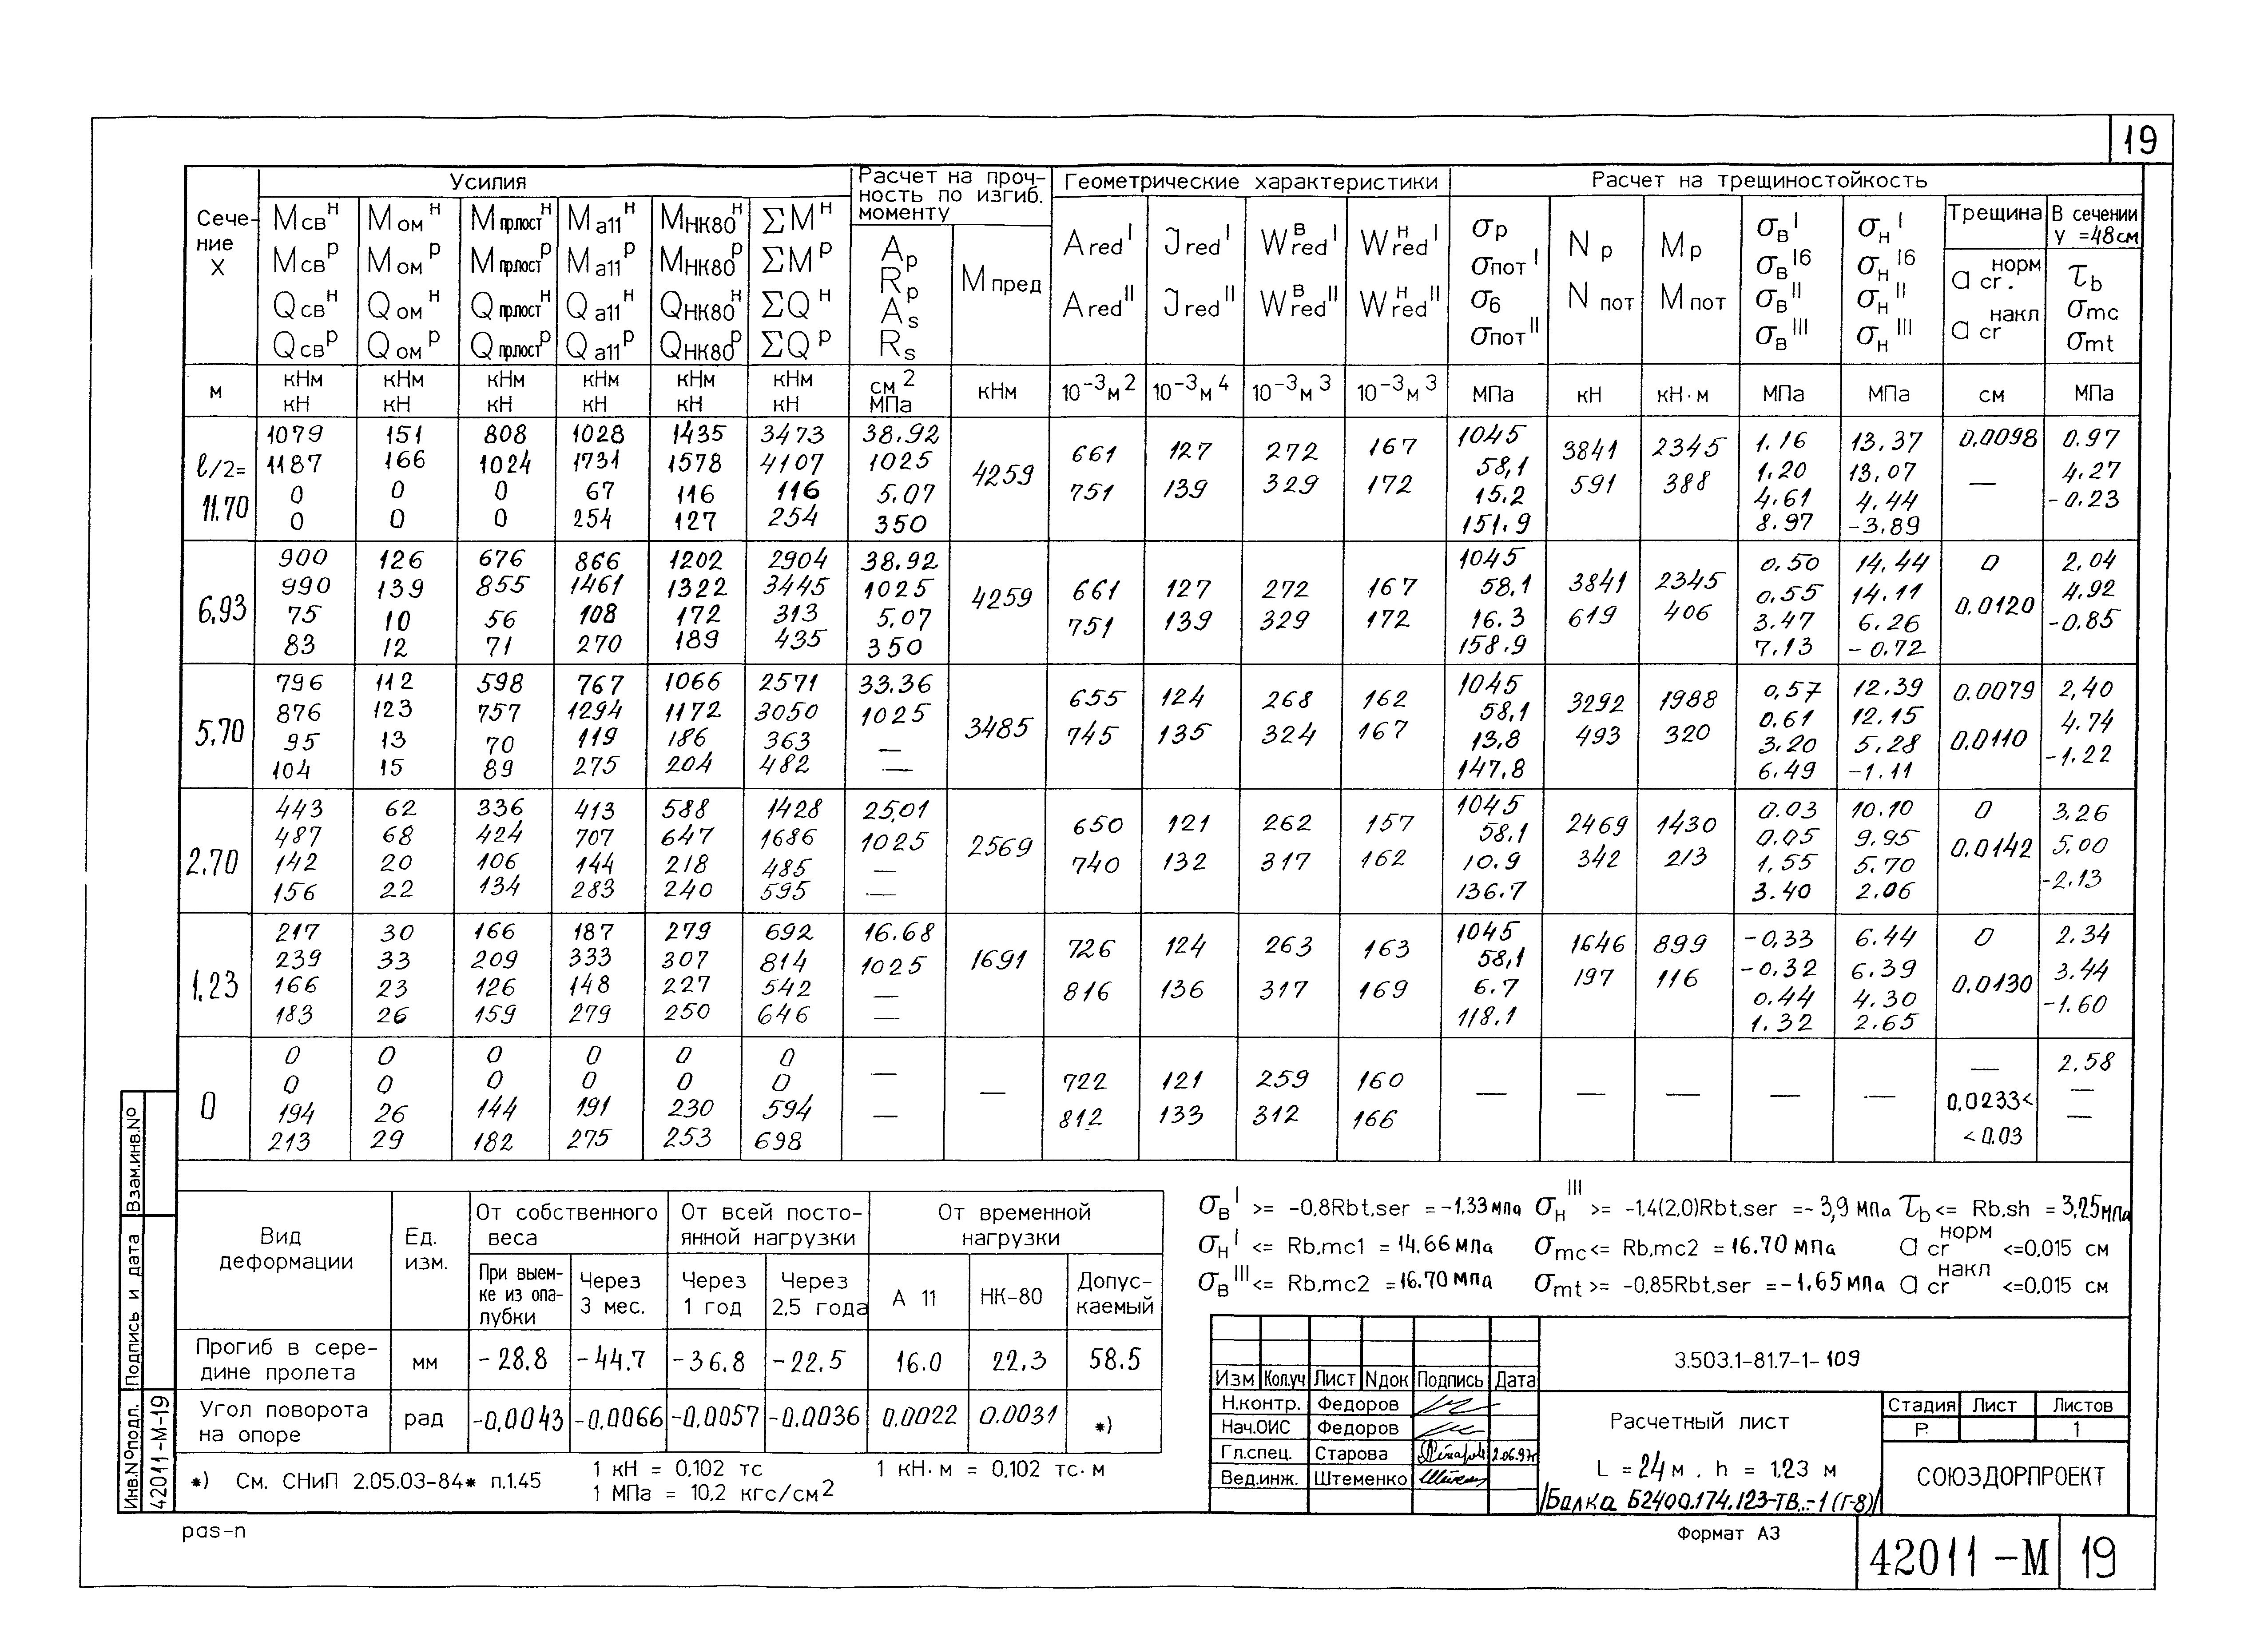 19
Усилия
Расчет на проч-
ность по изгиб.
моменту
Геометрические характеристики
Расчет на трещиностойкость
Сече-
ние
X
Mсвᴴ Mомᴴ Mпр.постᴴ Mа11ᴴ MНК80ᴴ ΣMᴴ
Mсвᴾ Mомᴾ Mпр.постᴾ Mа11ᴾ MНК80ᴾ ΣMᴾ
Qсвᴴ Qомᴴ Qпр.постᴴ Qа11ᴴ QНК80ᴴ ΣQᴴ
Qсвᴾ Qомᴾ Qпр.постᴾ Qа11ᴾ QНК80ᴾ ΣQᴾ
Ap
Rp
As
Rs
Mпред
Ared I Jred I Wred В I Wred Н I
Ared II Jred II Wred В II Wred Н II
σp
σпот I
σб
σпот II
Np
Nпот
Mp
Mпот
σв I
σв Iб
σв II
σв III
σн I
σн Iб
σн II
σн III
Трещина
a cr. норм
a cr накл
В сечении
y =48см
τb
σmc
σmt
м кНм кНм кНм кНм кНм кНм см2 кНм 10-3м2 10-3м4 10-3м3 10-3м3 МПа кН кН·м МПа МПа см МПа
кН кН кН кН кН кН МПа
ℓ/2=
11.70
1079 151 808 1028 1435 3473 38.92
1187 166 1024 1731 1578 4107 1025
0 0 0 67 116 116 5.07
0 0 0 254 127 254 350
4259
661 127 272 167
751 139 329 172
1045
58,1
15.2
151.9
3841 2345
591 388
1.16 13.37
1.20 13.07
4.61 4.44
8.97 -3.89
0.0098
—
0.97
4.27
-0.23
6,93
900 126 676 866 1202 2904 38.92
990 139 855 1461 1322 3445 1025
75 10 56 108 172 313 5,07
83 12 71 270 189 435 350
4259
661 127 272 167
751 139 329 172
1045
58,1
16.3
158.9
3841 2345
619 406
0.50 14.44
0.55 14.11
3.47 6.26
7.13 -0.72
0
0.0120
2.04
4.92
-0.85
5,70
796 112 598 767 1066 2571 33.36
876 123 757 1294 1172 3050 1025
95 13 70 119 186 363 —
104 15 89 275 204 482 —
3485
655 124 268 162
745 135 324 167
1045
58,1
13,8
147.8
3292 1988
493 320
0,57 12.39
0.61 12.15
3.20 5.28
6.49 -1.11
0.0079
0.0110
2,40
4.74
-1.22
2.70
443 62 336 413 588 1428 25,01
487 68 424 707 647 1686 1025
142 20 106 144 218 485 —
156 22 134 283 240 595 —
2569
650 121 262 157
740 132 317 162
1045
58.1
10.9
136.7
2469 1430
342 213
0.03 10.10
0.05 9.95
1,55 5.70
3.40 2.06
0
0.0142
3.26
5,00
-2.13
1,23
217 30 166 187 279 692 16.68
239 33 209 333 307 814 1025
166 23 126 148 227 542 —
183 26 159 279 250 646 —
1691
726 124 263 163
816 136 317 169
1045
58,1
6.7
118.1
1646 899
197 116
-0,33 6.44
-0.32 6.39
0.44 4.30
1.32 2.65
0
0.0130
2.34
3.44
-1.60
0
0 0 0 0 0 0 —
0 0 0 0 0 0
194 26 144 191 230 594 —
213 29 182 275 253 698
—
722 121 259 160
812 133 312 166
— — — — —
—
0,0233<
<0.03
2.58
—
—
Вид
деформации
Ед.
изм.
От собственного
веса
От всей посто-
янной нагрузки
От временной
нагрузки
При выем-
ке из опа-
лубки
Через
3 мес.
Через
1 год
Через
2,5 года
А 11
НК-80
Допус-
каемый
Прогиб в сере-
дине пролета
мм -28.8 -44.7 -36.8 -22.5 16.0 22.3 58.5
Угол поворота
на опоре
рад -0,0043 -0.0066 -0.0057 -0.0036 0.0022 0.0031 *)
*) См. СНиП 2.05.03-84* п.1.45
1 кН = 0,102 тс 1 кН·м = 0,102 тс·м
1 МПа = 10,2 кгс/см2
σв I >= -0,8Rbt,ser =-1.33мпа σн III >= -1,4(2,0)Rbt,ser =-3,9 МПа τb<= Rb,sh =3,25мпа
σн I <= Rb,mc1 =14.66мпа σmc<= Rb,mc2 =16.70МПа a cr норм <=0,015 см
σв III<= Rb,mc2 =16.70мпа σmt>= -0,85Rbt,ser =-1,65МПа a cr накл <=0,015 см
Изм Кол.уч Лист Nдок Подпись Дата
Н.контр. Федоров
Нач.ОИС Федоров
Гл.спец. Старова 2.06.97г
Вед.инж. Штеменко
3.503.1-81.7-1-109
Расчетный лист
L =24м , h = 1.23 м
/Балка Б2400.174.123-ТВ..-1(Г-8)/
Стадия Лист Листов
Р. 1
СОЮЗДОРПРОЕКТ
Взам.инв.№
Подпись и дата
Инв.№подл.
42011-М-19
pas-n
Формат А3
42011-М 19